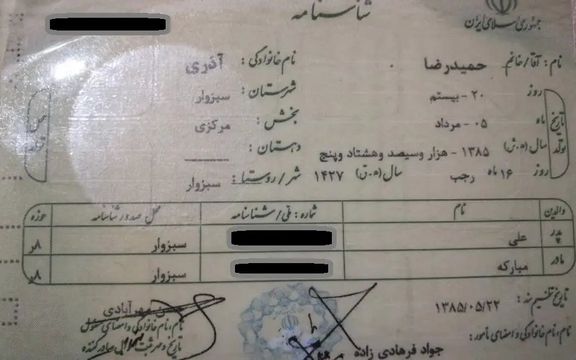 شناسنامه
جمهوری اسلامی ایران
نام: آقا/خانم حمیدرضا نام خانوادگی: آذری
تاریخ تولد
روز ۲۰ - بیستم
ماه ۰۵ - مرداد
سال (ه.ش) ۱۳۸۵ - هزار و سیصد و هشتاد و پنج
روز ۱۶ ماه رجب سال (ه.ق) ۱۴۲۷
محل تولد
شهرستان: سبزوار
بخش: مرکزی
دهستان: ----------
شهر/روستا: سبزوار
والدین نام شماره ملی/شناسنامه محل صدور شناسنامه حوزه
پدر علی سبزوار ۸ر
مادر مبارکه سبزوار ۸ر
تاریخ تنظیم سند: ۱۳۸۵/۰۵/۲۲
نام، نام خانوادگی و امضای مأمور:
جواد فرهادی زاده
مهرآبادی
نام، نام خانوادگی و امضای